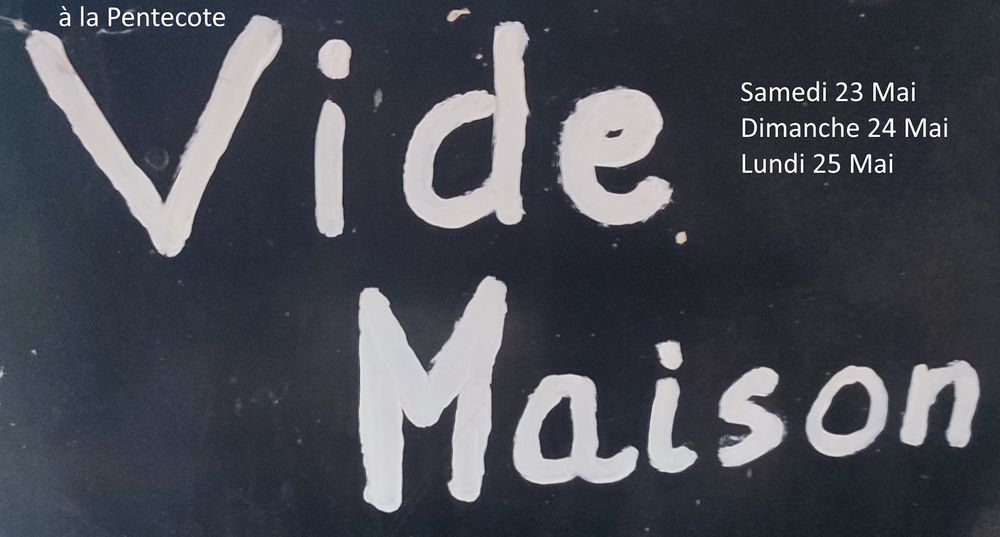 à la Pentecote
Vide
Samedi 23 Mai
Dimanche 24 Mai
Lundi 25 Mai
Maison